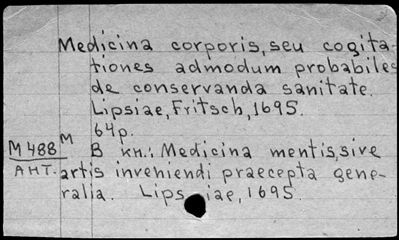 Medicina corporis, seu cogita-
tiones admodum probabiles
de conservanda sanitate.
Lipsiae, Fritsch, 1695.
64p.
M
M 488 В кн.: Medicina mentis, sive
АНТ. artis inveniendi praecepta gene-
ralia. Lipsiae, 1695.